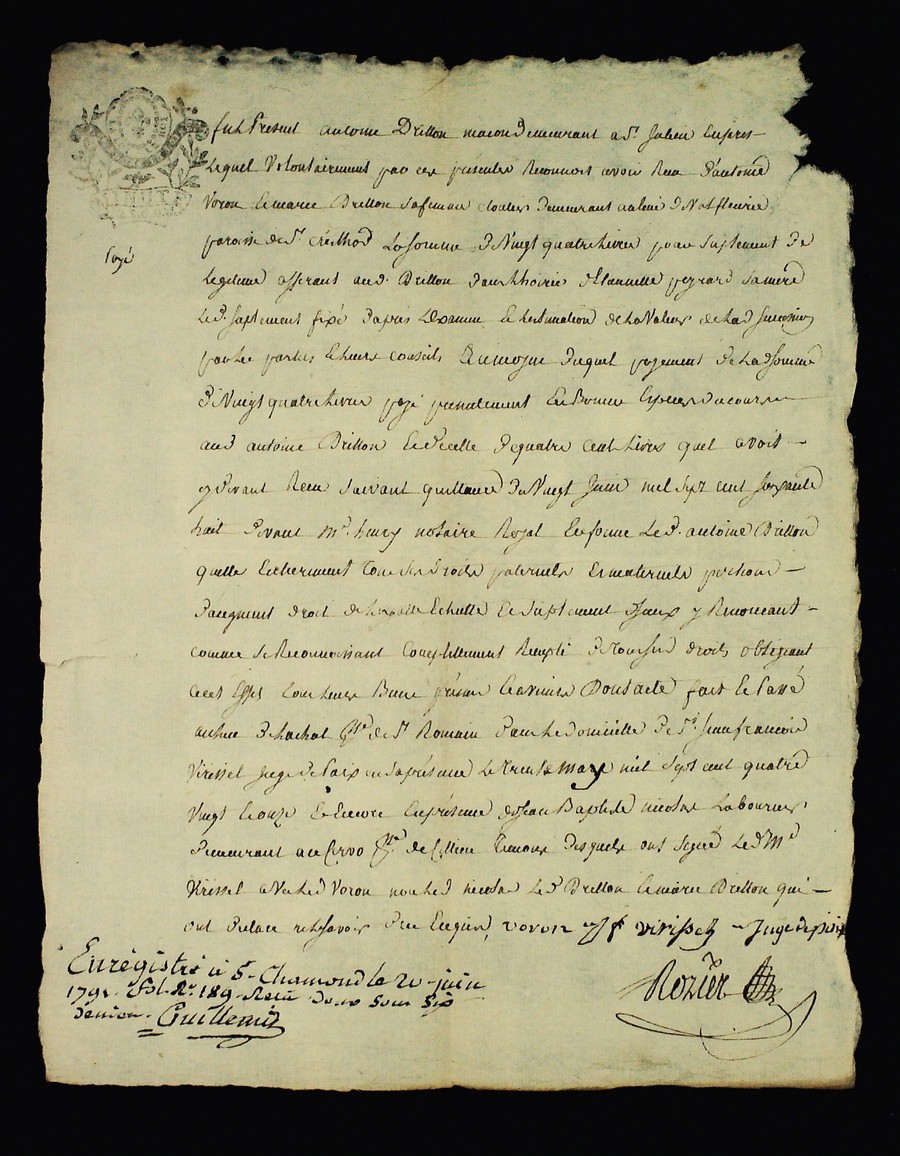 fut Present antoine Drillon macon demeurant a St. Julien en jarés
Lequel volontairement par ces presentes Reconnoit avoir Recu d'antoine
Voron et marie Drillon sa femme cloutier demeurant au lieu de
paroisse de St. la somme de Vingt quatre livres pour suplement de
payé
Legitime afferant aud. Drillon dans l'hoirie d'Etiennette peyrard sa mere
Le d. suplement fixé d'apres L'examen et lestimation de la Valeur de lad. succession
par les parties et leurs conseils Aumoyen duquel payement de lad somme
de Vingt quatre livres payé presentement en Bonnes Especes du cours
aud antoine Drillon et de celle de quatre cent livres quel avoit
cy devant Recu suivant quittance du Vingt Juin mil sept cent soixante
huit devant Me. henry notaire Royal Le d. antoine Drillon
quitte Entierement tous ses droits paternels et maternels
droit de et suplement d'iceux y Renoncant
comme se Reconnoissant Completement Rempli de tous ses droits obligeant
a cet Effet tous leurs Biens presens et avenir Dont acte fait et Passé
au lieu de lachal psse de St. Romain dans le domicille de Sr. Jean francois
Virissel Juge de Paix en sa présence le trente mars mil sept cent quatre
Vingt et onze et Encore En présence de Jean Baptiste nicolas Labourier
demeurant au psse de Cellieu temoins Desquels ont signé Led Me
Virissel avec led Voron non led nicolas Led Drillon et marie Drillon qui
ont declaré ne le savoir De ce Enquis, voron virissel Juge de paix
Enregistré à St. Chamond le 20 juin
1791. Fol. Ro. 189. Recu deux sous six
deniers. Guillemin
Rozier